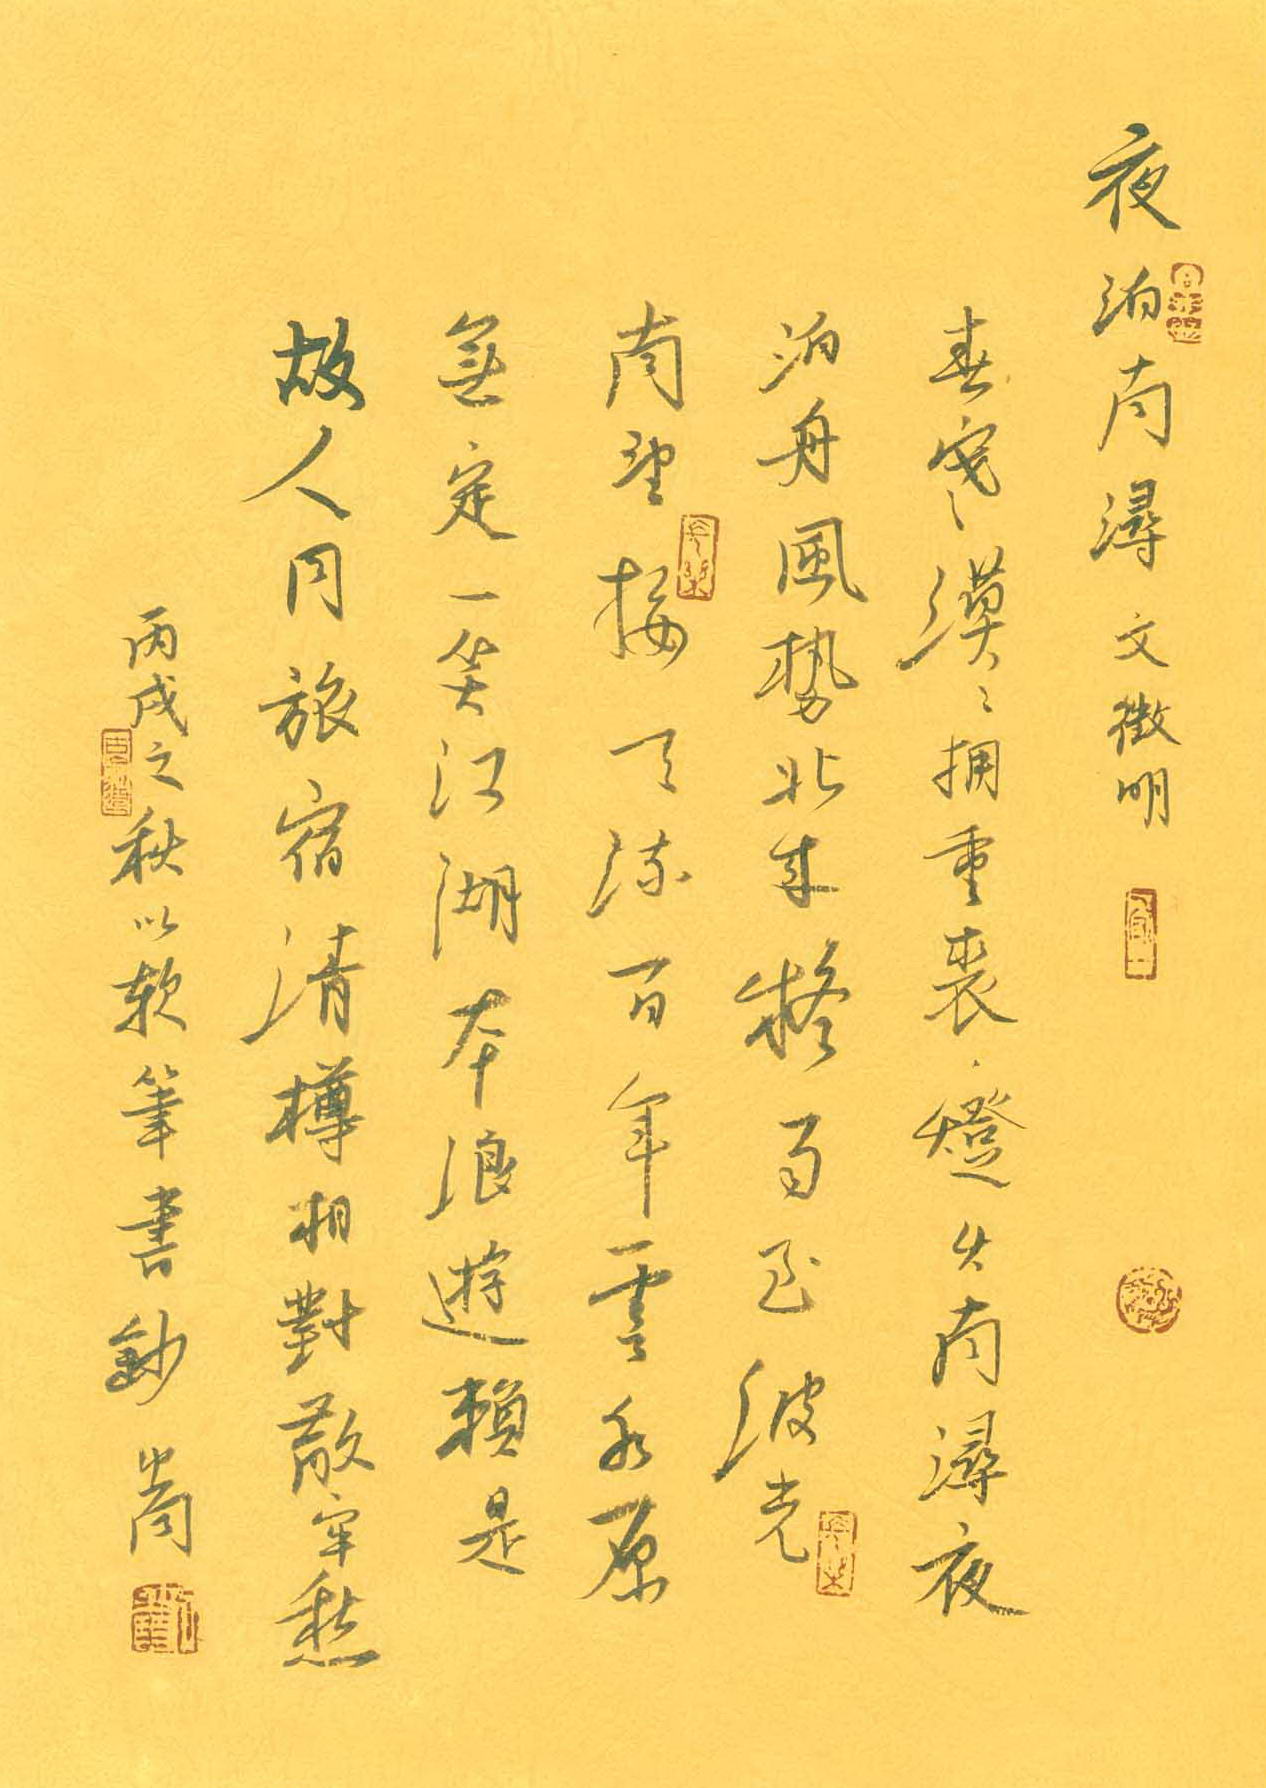 夜泊南潯 文徵明
春寒漠々擁重裘燈火南潯夜
泊舟風勢北来疑雨至波光
南望接天流百年雲水原
無定一笑江湖本浪遊賴是
故人同旅宿清樽相對散牢愁
丙戌之秋以軟筆書鈔